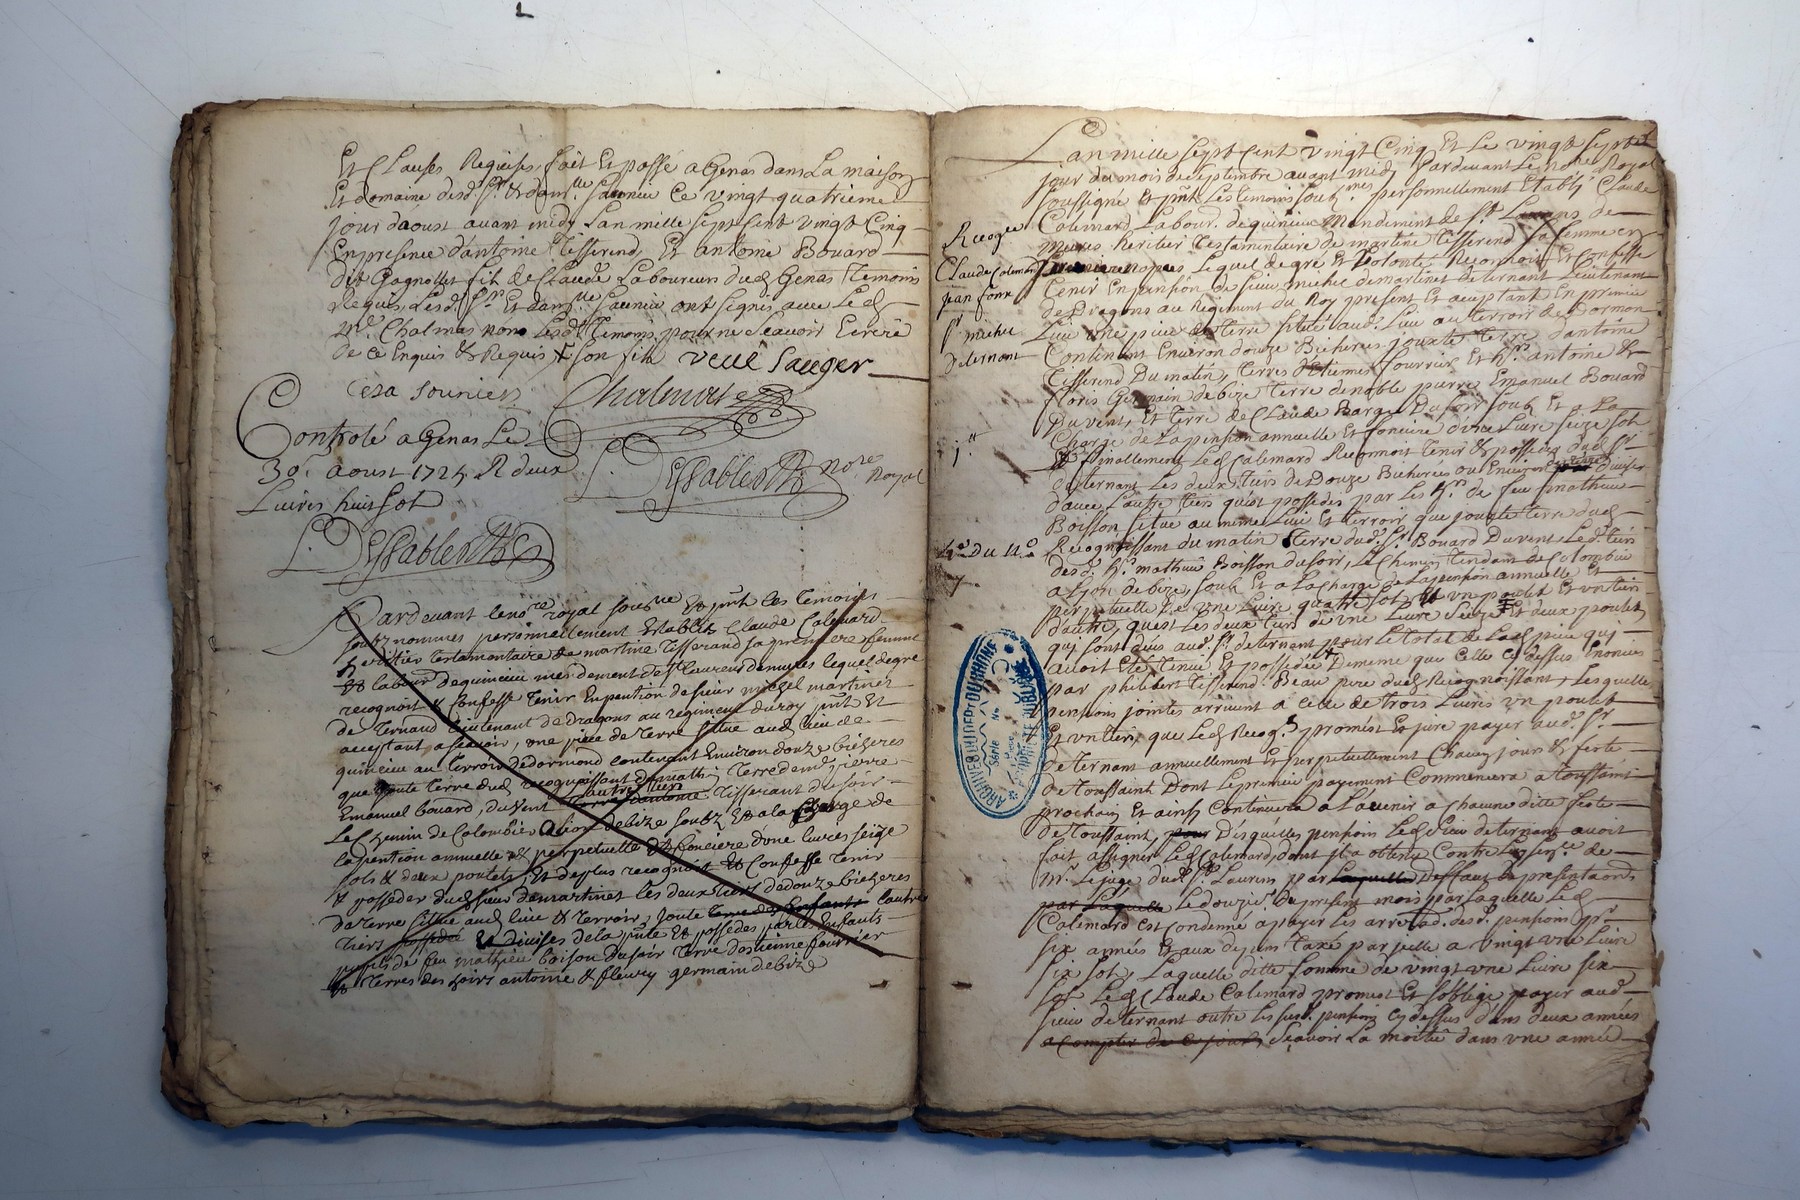 Et Clauses Requises, fait Et passé a Genas dans La maison
Et domaine desd. Sr. & damlle. Saunier Ce vingt quatrieme
jour daoust avant midy Lan mille sept cent vingt Cinq
En presence d'antoine Tisserend, Et antoine Bouard
dit Gagnollet fils de Claude Laboureurs dud Genas Temoins
Requis Lesd. Sr. Et damlle. Saunier ont signés avec Led
Me. Chalmas non Lesd. Temoins pour ne Scavoir Ecrire
de ce Enquis & Requis, son fils veuë Sauger
Chalmas
Controlé a Genas Le
30e. aoust 1725 R deux
Livres huit sot
Dessablon nore. Royal
Dessablon
Pardevant le nore royal sousne & pnt les temoins
soubz nommes personnellement Establis Claude Calemard
heritier testamentaire de martine Tisserand sa premiere femme
& labour dequincieu mendement de St laurens demures lequel degre
recognoit & Confesse Tenir En pention de sieur michel martinet
de Ternand Lieutenant de Dragons au regiment du roy pnt Et
acceptant ascavoir, une piece de Terre situe aud lieu de
quincieu au terroir dedormond contenant Environ douze bicheres
que joute terre dud recognoissant du matin Terre de me. pierre
autre tiers
Emanuel bouard, duvent terre dantoine Tisserant du soir
Le Chemin de Colombier a lion debize soubz & a la Charge de
la pention annuelle & perpetuelle & fonciere dune livres seize
sols & deux poulets, Et deplus recognoit & Confesse Tenir
& posseder dud sieur demartinet les deux tiers dedouze bicheres
de terre situe aud lieu & terroir, joute terre des Enfants lautre
tiers possedé Et divises de la pnte & possedes par les Enfants
pupils de feu mathieu boison du soir Terre destienne fourrier
& Terres des hoirs antoine & fleury germain debize
Lan mille sept cent vingt Cinq Et Le vingt sept
jour du mois de septembre avant midy Pardevant Le nore Royal
soussigné Et pnt Les Temoins soub. nes personnellement Etably Claude
Calemard Labour. de quincieu Mandement de St Laurens de
mures heritier Testamentaire de martine Tisserend sa femme en
premiere nopces, Lequel de gré Et volonté Reconnoit Et Confesse
Tenir En pension de sieur michel demartinet deternant Lieutenant
de Dragons au Regiment du Roy present Et aceptant En premier
Lieu Une piece de terre situé aud. Lieu au terroir de Dormon
Contenant Environ douze Bicherees jouxte Terre d'antoine
Tisserend Du matin, terres d'Etienne fourrier Et hrs. antoine &
floris Germain de bize terre denoble pierre Emanuel Bouard
Du vent, Et terre de Claude Barge Du soir soub Et a La
Charge de La pension annuelle Et fonciere d'une Livre seize sot
Et finallement Led Calemard Reconnoit Tenir & posseder dud Sr.
deternant Les deux tiers de Douze Bicherees ou Environ divises
d'avec L'autre tiers qu'est possedés par Les hrs. de feu mathieu
Boisson situe au meme Lieu Et terroir que jouxte terre dud
Recognoissant du matin Terre dud. Sr. Bouard Du vent, Led. tiers
desd. hrs. mathieu Boisson du soir, Le Chemin Tendant de Colombier
a Lyon de bize, soub Et a La charge de La pension annuelle Et
perpetuelle de vne Livre quatre sot Et vn poulet Et vn tier
d'autre, quest Les deux tiers de vne Livre seize Et deux poulets
qui sont dûes aud. Sr. deternant pour Le total de Lad piece qui
avoit Eté tenue Et possedée de meme que Celle Cy dessus Enoncée
par philibert Tisserend Beau pere dud Recognoissant, Lesquelles
pensions jointes arrivent a Celle de trois Livres vn poulet
Et vn tiers, que Led Recogt. promest Et jure payer aud. Sr.
deternant annuellement Et perpetuellement Chacun jour & feste
de Toussaint Dont Le premier payement Commencera a Toussaint
prochain Et ainsy Continuera a L'avenir a chacune ditte feste
de Toussaint, pour Desquelles pensions Led sieur deternant avoit
fait assigner Led Calemard, dont il a obtenu Contre Luy snce. de
Mr. Lejuge dud. St. Laurens par Laquelle Deffaut de presentaons
par Laquelle Ledouze Du present mois par Laquelle Led
Calemard Est Condemné a payer Les arreradesd. pensions pr.
six années Et aux depens Taxe par jcelle a vingt vne Livre
six sot, Laquelle ditte somme de vingt vne Livre six
sot Led Claude Calemard promest Et s'oblige payer aud
sieur deternant outre Les susd. pensions cy dessus dans deux années
a compter de ce jour, Scavoir La moitié dans vne année
Recogce
Claude Calemard
pr
Sr michel
Deternant
1er
2e. Du 11e.
ARCHIVES DU DEPT DU RHONE
Série No